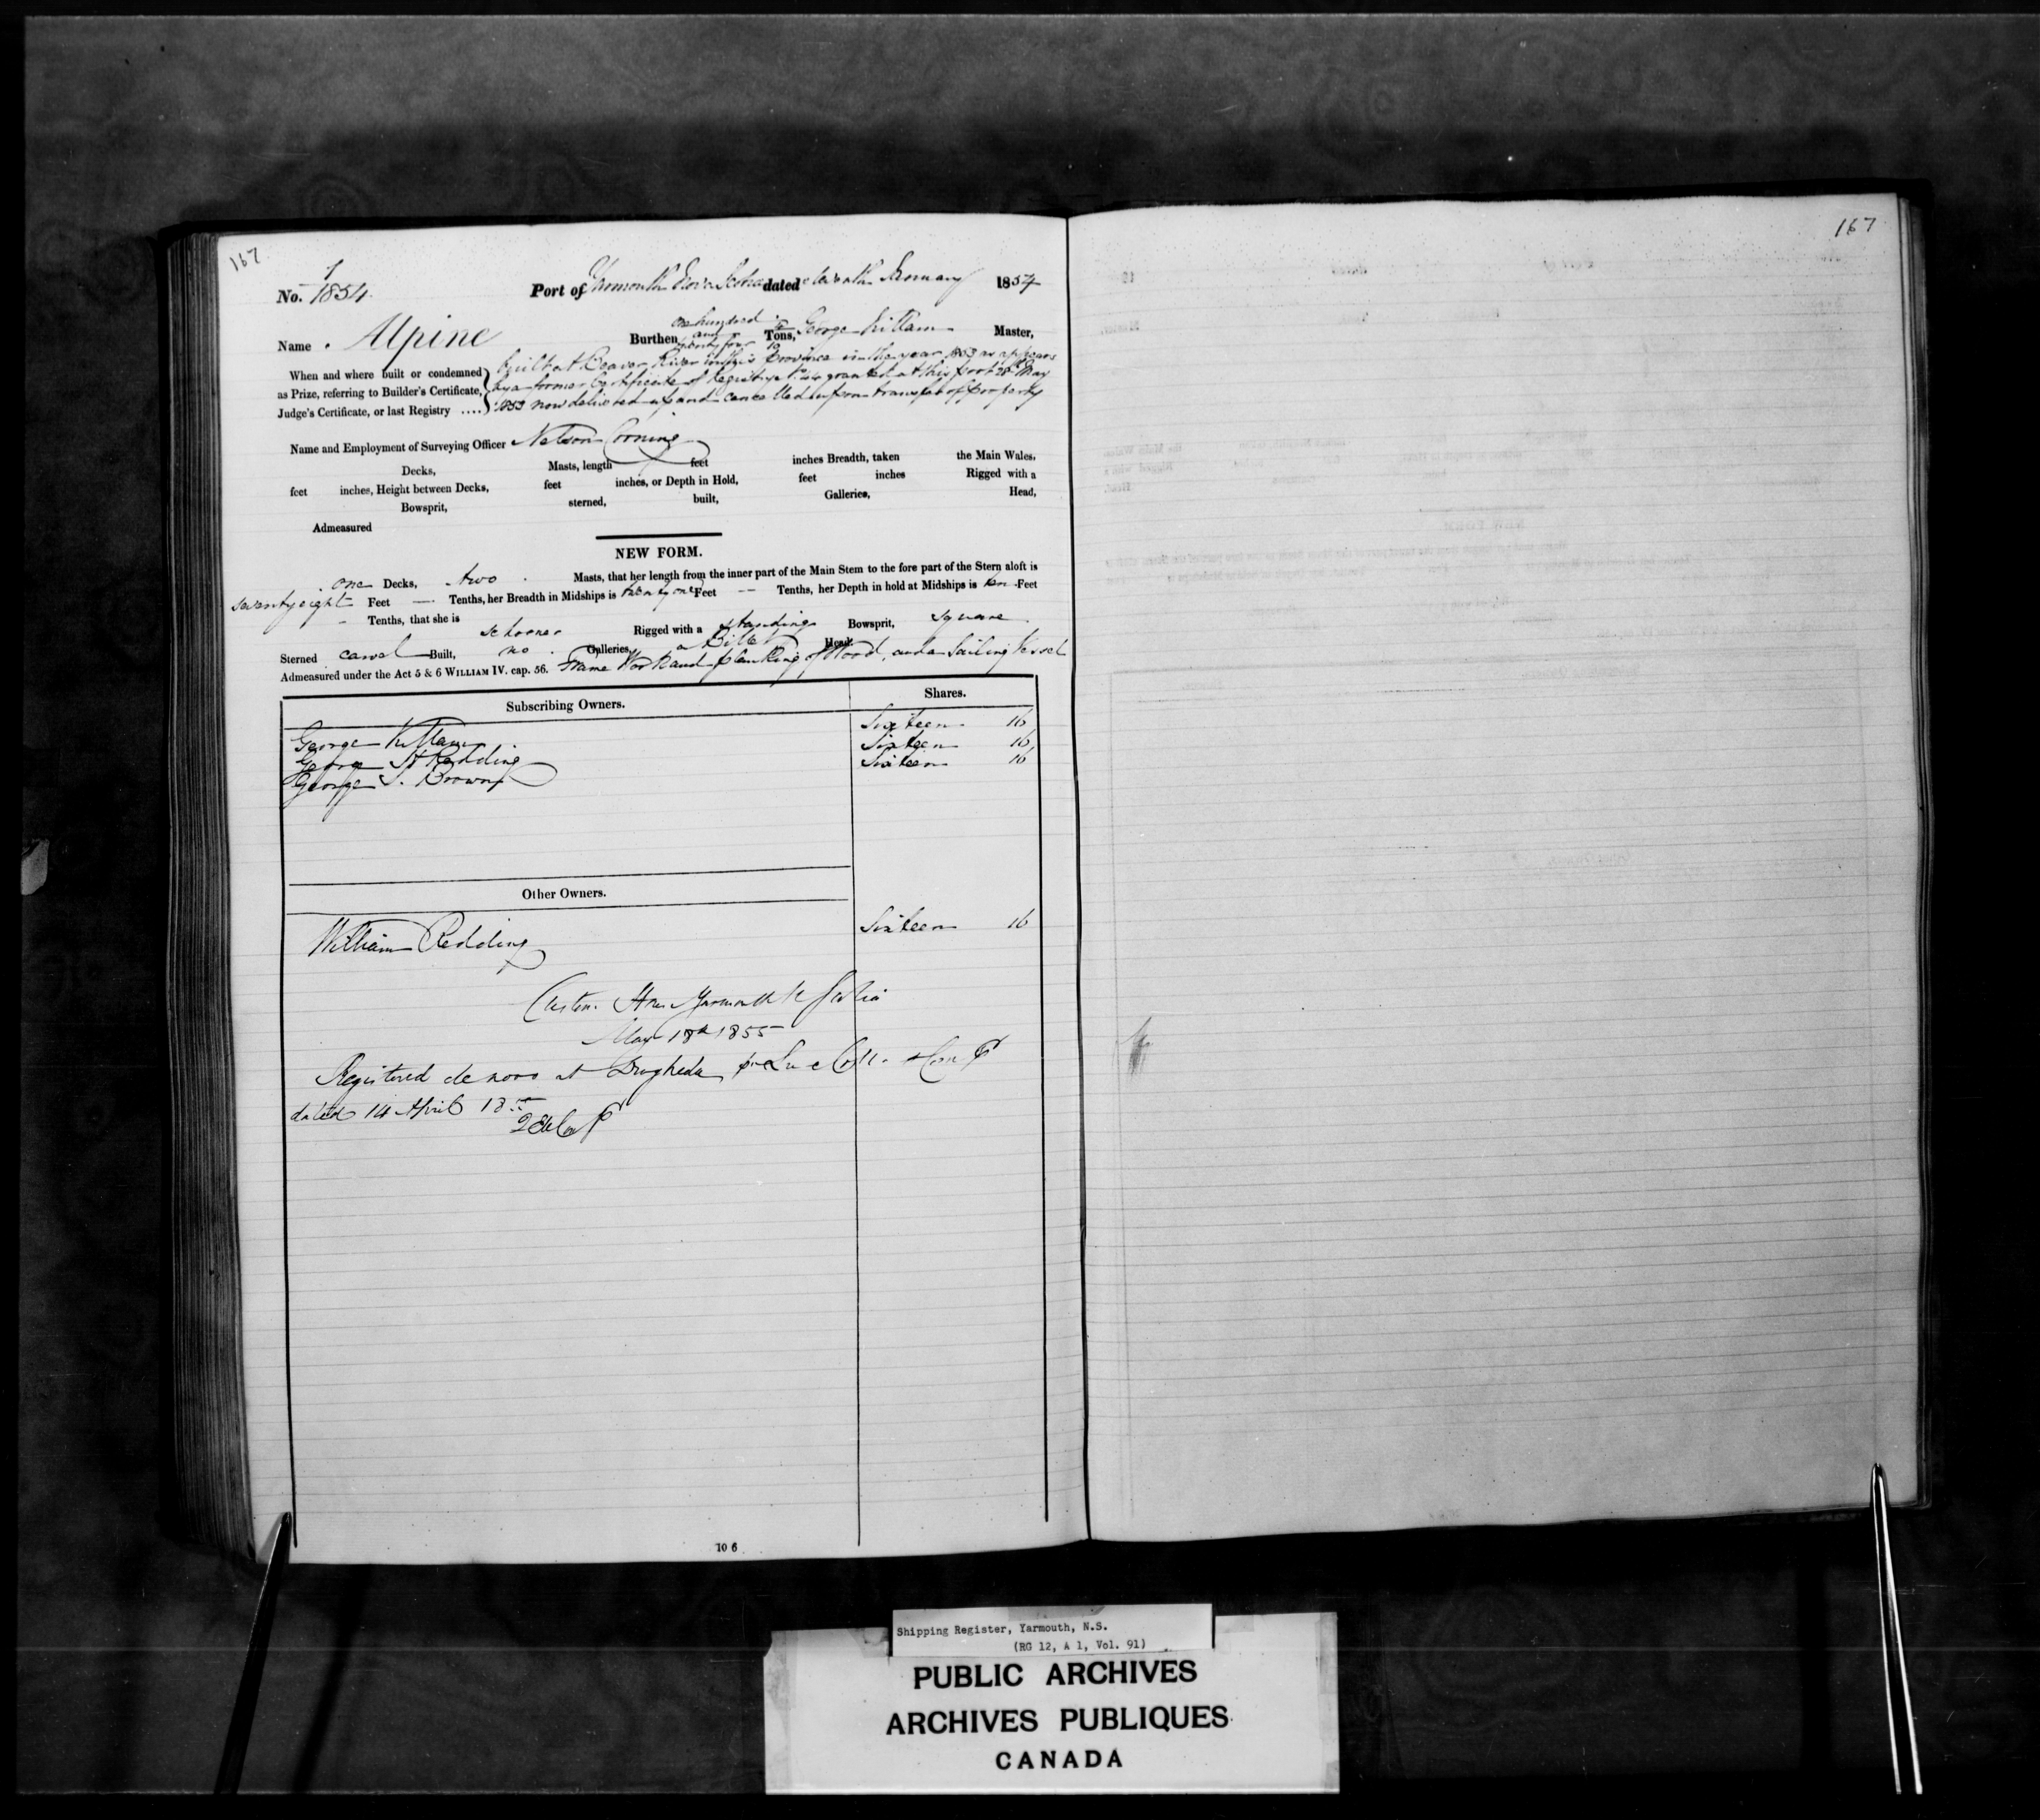 167
167
No. 1/1854 Port of Yarmouth Nova Scotia dated eleventh January 1854
Name Alpine Burthen one hundred and twenty four Tons, George Killam Master,
When and where built or condemned as Prize, referring to Builder's Certificate, Judge's Certificate, or last Registry ....
built at Beaver River in this Province in the year 1853 as appears
by a former Certificate of Registry No. 44 granted at this port 28th May
1853 now delivered up and cancelled upon transfer of property
Name and Employment of Surveying Officer Nelson Corning
Decks, Masts, length feet inches Breadth, taken the Main Wales.
feet inches, Height between Decks, feet inches, or Depth in Hold, feet inches Rigged with a
Bowsprit, sterned, built, Galleries, Head,
Admeasured
NEW FORM.
one Decks, two Masts, that her length from the inner part of the Main Stem to the fore part of the Stern aloft is
seventy eight Feet — Tenths, her Breadth in Midships is twenty one Feet — Tenths, her Depth in hold at Midships is ten Feet
- Tenths, that she is schooner Rigged with a standing Bowsprit, square
Sterned carvel Built, no Galleries, a Billet Head
Admeasured under the Act 5 & 6 WILLIAM IV. cap. 56. Frame Work and planking of Wood, and a Sailing Vessel
Subscribing Owners. Shares.
George Killam Sixteen 16
George H Redding Sixteen 16
George S. Brown Sixteen 16
Other Owners.
William Redding Sixteen 16
Custom House Yarmouth N Scotia
May 18th 1855
Registered de novo at Drogheda
dated 14 April 18
10 6
Shipping Register, Yarmouth, N.S.
(RG 12, A 1, Vol. 91)
PUBLIC ARCHIVES
ARCHIVES PUBLIQUES
CANADA